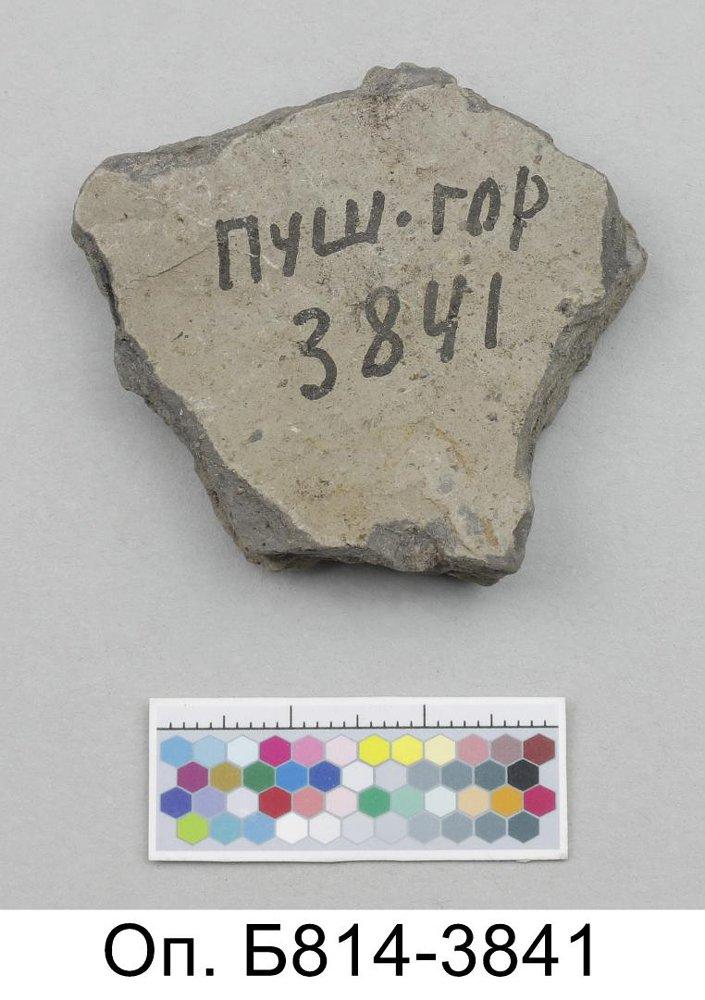 ПУШ.ГОР
3841
Оп. Б814-3841